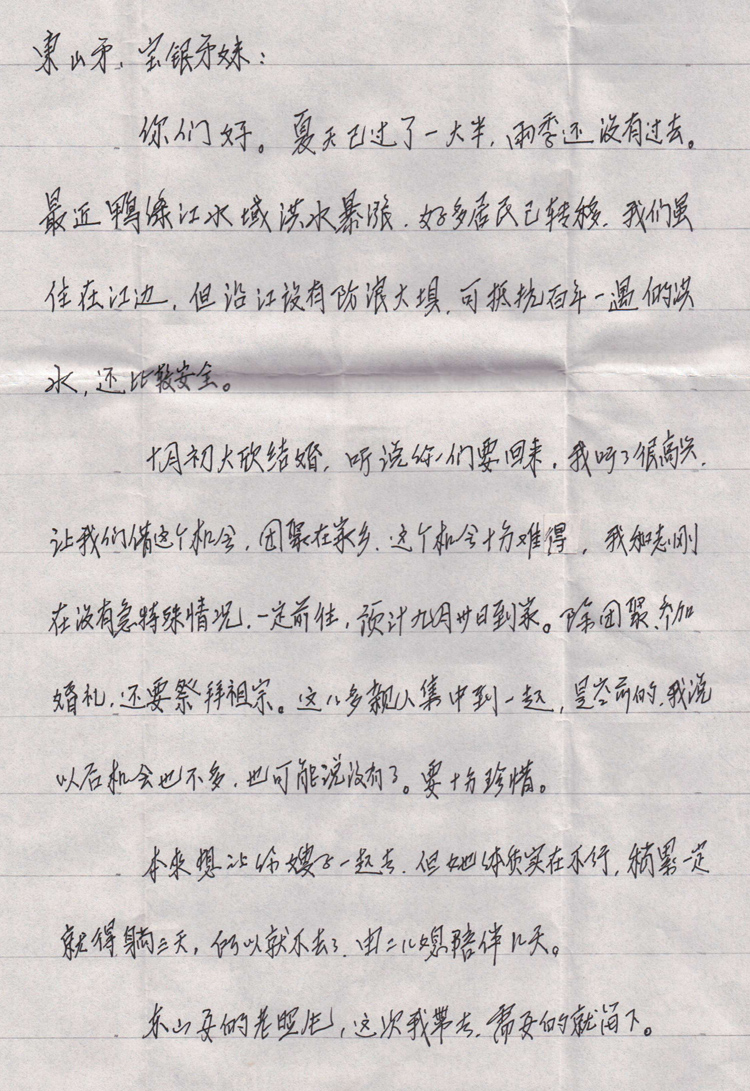 东山弟、宝银弟妹：
你们好。夏天已过了一大半，雨季还没有过去。
最近鸭绿江水域洪水暴涨，好多居民已转移，我们虽
住在江边，但沿江设有防浪大坝，可抵抗百年一遇的洪
水，还比较安全。
十月初大欣结婚，听说你们要回来，我听了很高兴，
让我们借这个机会，团聚在家乡，这个机会十分难得，我和志刚
在没有急特殊情况，一定前往，预计九月廿日到家。除团聚、参加
婚礼，还要祭拜祖宗。这么多亲人集中到一起，是空前的，我说
以后机会也不多，也可能说没有了。要十分珍惜。
本来想让你嫂子一起去，但她体质实在不行，稍累一定
就得躺三天，所以就不去了，由二儿媳陪伴几天。
东山要的老照片，这次我带去，需要的就留下。